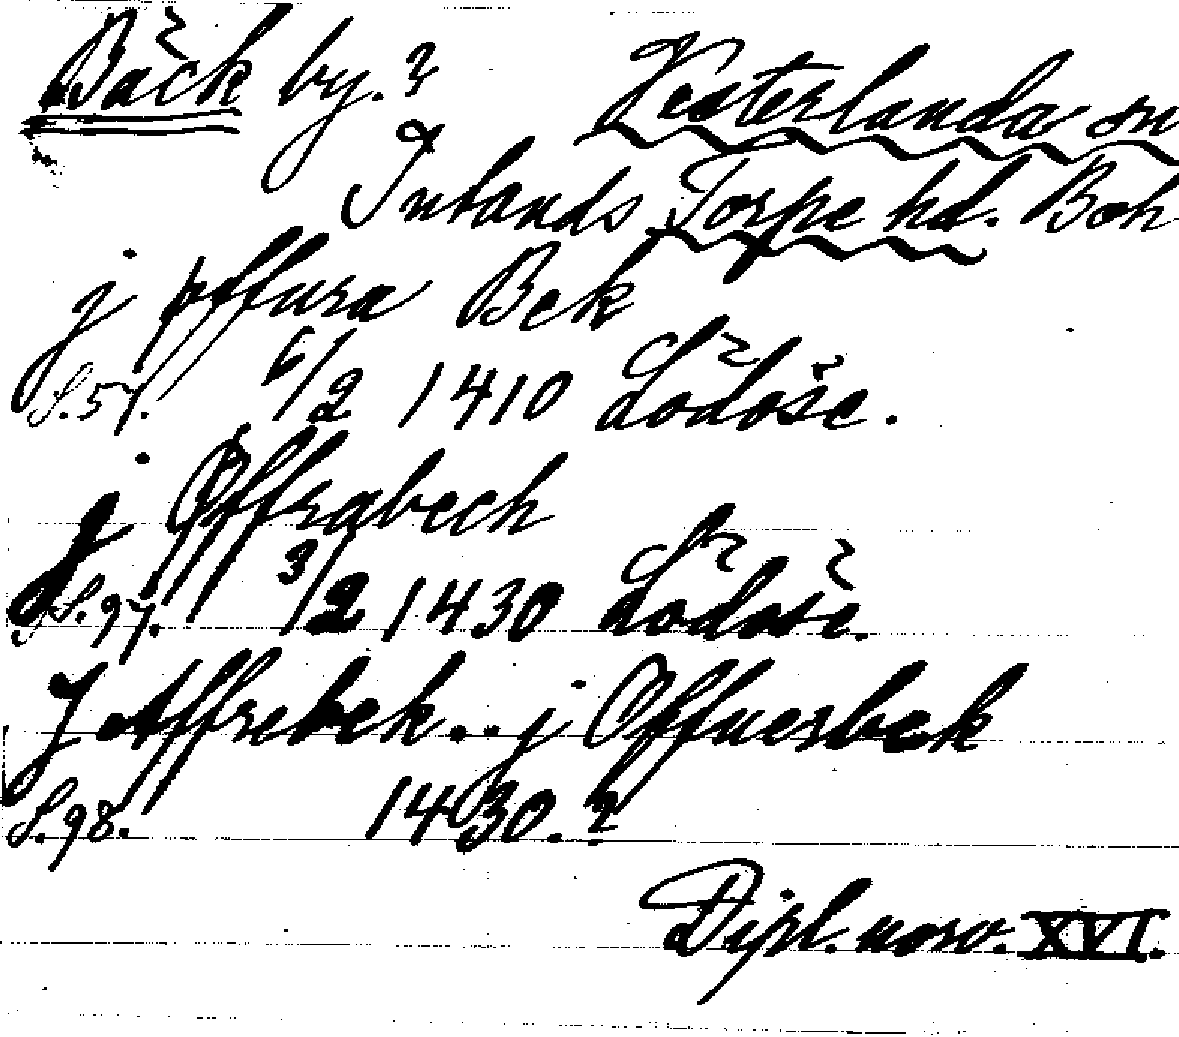 Bäck by. ? Vesterlanda sn
Inlands Torpe hd. Boh
j øffura Bek
S.57. 6/2 1410 Lödöse.
j Øffrabech
S.97. 3/2 1430 Lödöse.
J Affrebek .. j Offuerbek
S.98. 1430. ?
Dipl. norv. XVI.